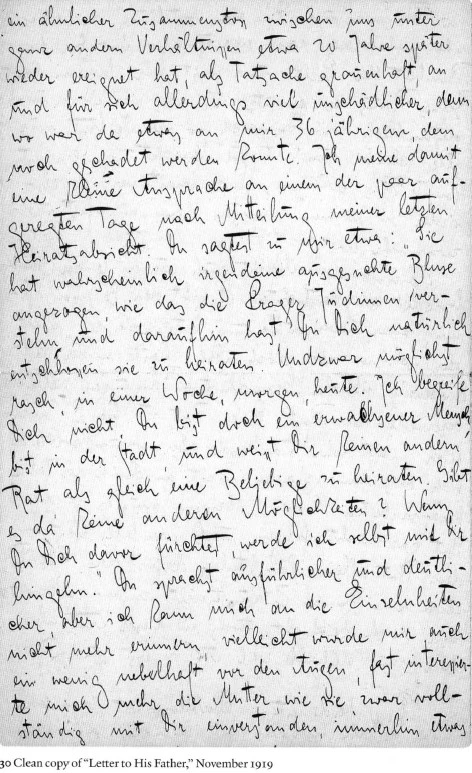 ein ähnlicher Zusammenstoss zwischen uns unter
ganz andern Verhältnissen etwa 20 Jahre später
wieder ereignet hat, als Tatsache grauenhaft, an
und für sich allerdings viel unschädlicher, denn
wo war da etwas an mir 36 jährigem, dem
noch geschadet werden konnte. Ich meine damit
eine kleine Aussprache an einem der paar auf-
geregten Tage nach Mitteilung meiner letzten
Heiratsabsicht. Du sagtest zu mir etwa: „Sie
hat wahrscheinlich irgendeine ausgesuchte Bluse
angezogen, wie das die Prager Jüdinnen ver-
stehn und daraufhin hast Du Dich natürlich
entschlossen sie zu heiraten. Undzwar möglichst
rasch, in einer Woche, morgen, heute. Ich begreife
Dich nicht, Du bist doch ein erwachsener Mensch,
bist in der Stadt, und weisst Dir keinen andern
Rat als gleich eine Beliebige zu heiraten. Gibt
es da keine anderen Möglichkeiten? Wenn
Du Dich davor fürchtest, werde ich selbst mit Dir
hingehn." Du sprachst ausführlicher und deutli-
cher, aber ich kann mich an die Einzelnheiten
nicht mehr erinnern, vielleicht wurde mir auch
ein wenig nebelhaft vor den Augen, fast interessier-
te mich mehr die Mutter, wie sie zwar voll-
ständig mit Dir einverstanden, immerhin etwas
30 Clean copy of “Letter to His Father,” November 1919